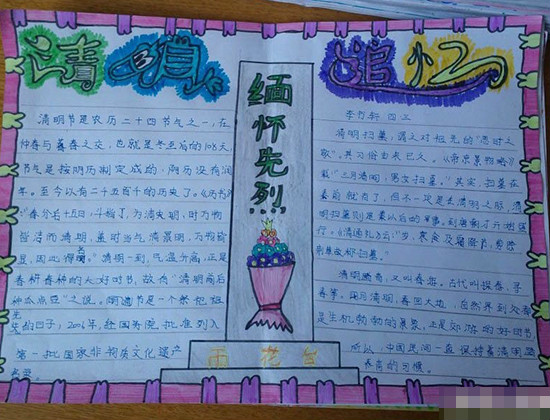 清明
追忆
缅怀先烈
雨花台
清明节是农历二十四节气之一,在
仲春与暮春之交,也就是冬至后的108天
节气是按阴历制定成的,阴历没有闰
年。至今以有二千五百年的历史了。《历书》
:"春分后十五日,斗指丁,为清明,时万物
皆洁而清明,盖时当气清景明,万物皆
显,因此得名。"清明一到,气温升高,正是
春耕春种的大好时节,故有"清明前后
种瓜点豆"之说。明节是一个祭祀祖
先的日子;2006年,经国务院批准列入
第一批国家非物质文化遗产
名录。
李 四三
清明扫墓,谓之对祖先的"思时之
敬"。其习俗由来已久。《帝京景物略》
载"三月清明,男女扫墓。"其实,扫墓在
秦前就有了,但不一定是在清明之际,清
明扫墓则是秦以后的事。到唐朝才开始盛
行。《清通礼》云:"岁,寒食及霜降节,
扫墓。
清明踏青,又叫春游。古代叫探春、寻
春等。四月清明,春回大地,自然界到处都
是生机勃勃的景象,正是郊游的好时节
所以,中国民间一直保持着清明踏
青的习惯。